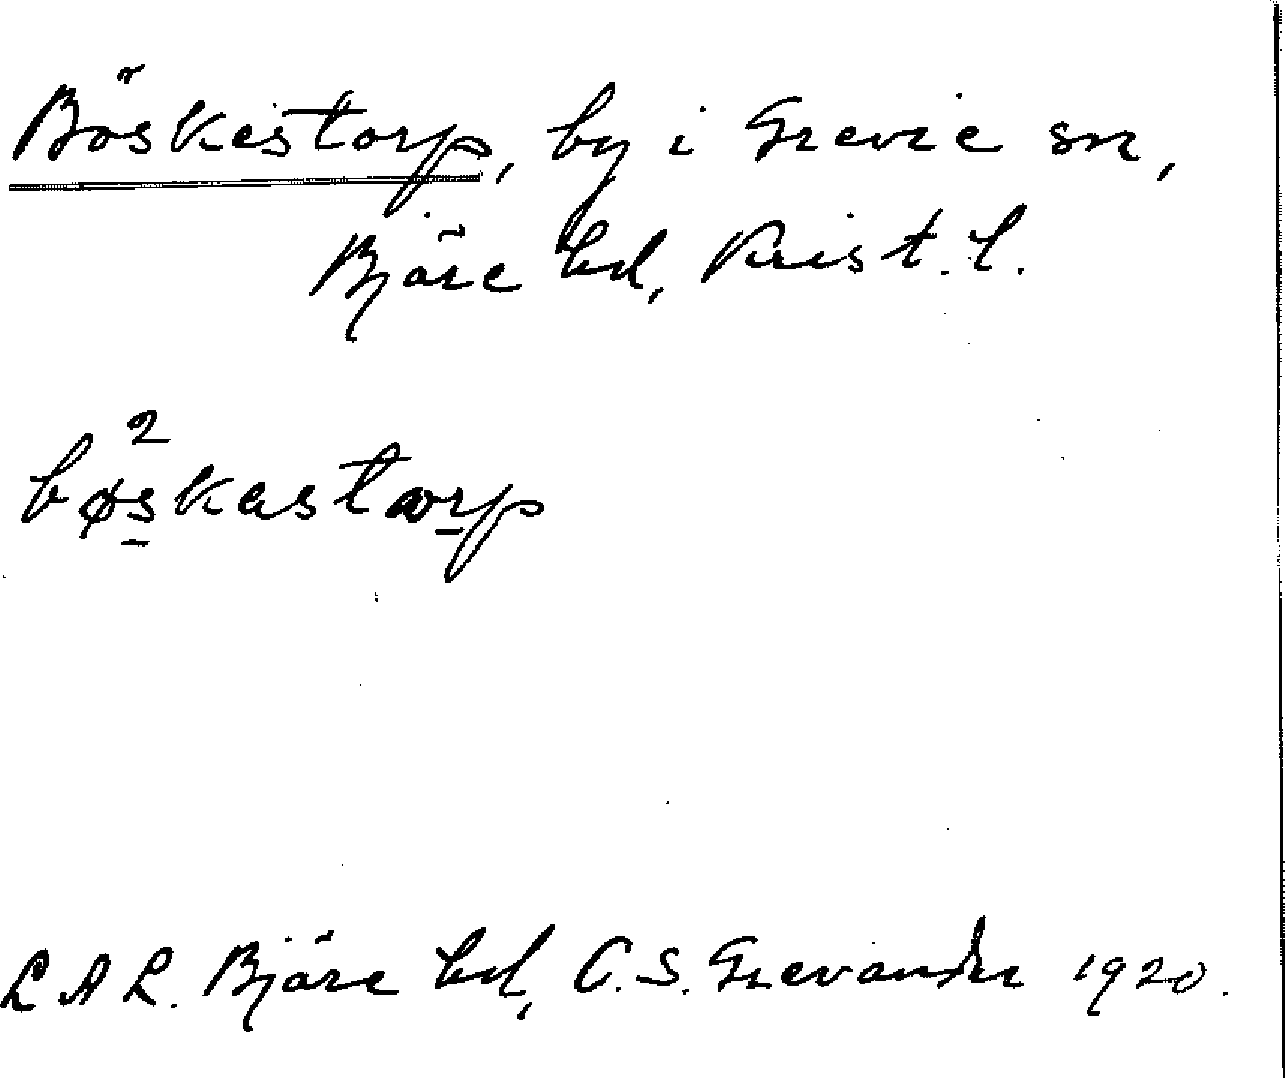 Böskestorp, by i Grevie sn,
Bjäre hd, Krist. l.
bø²skastorp
L A L. Bjäre hd, C. S. Grevander 1920.